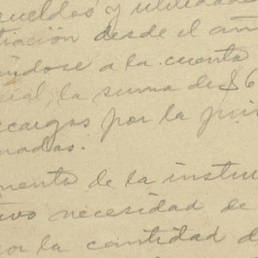 sueldos y utilidades
tración desde el añ
ándose a la cuenta
ial, la suma de $6
cargos por la pri
nadas.
mento de la instru
tivo necesidad de
por la cantidad d